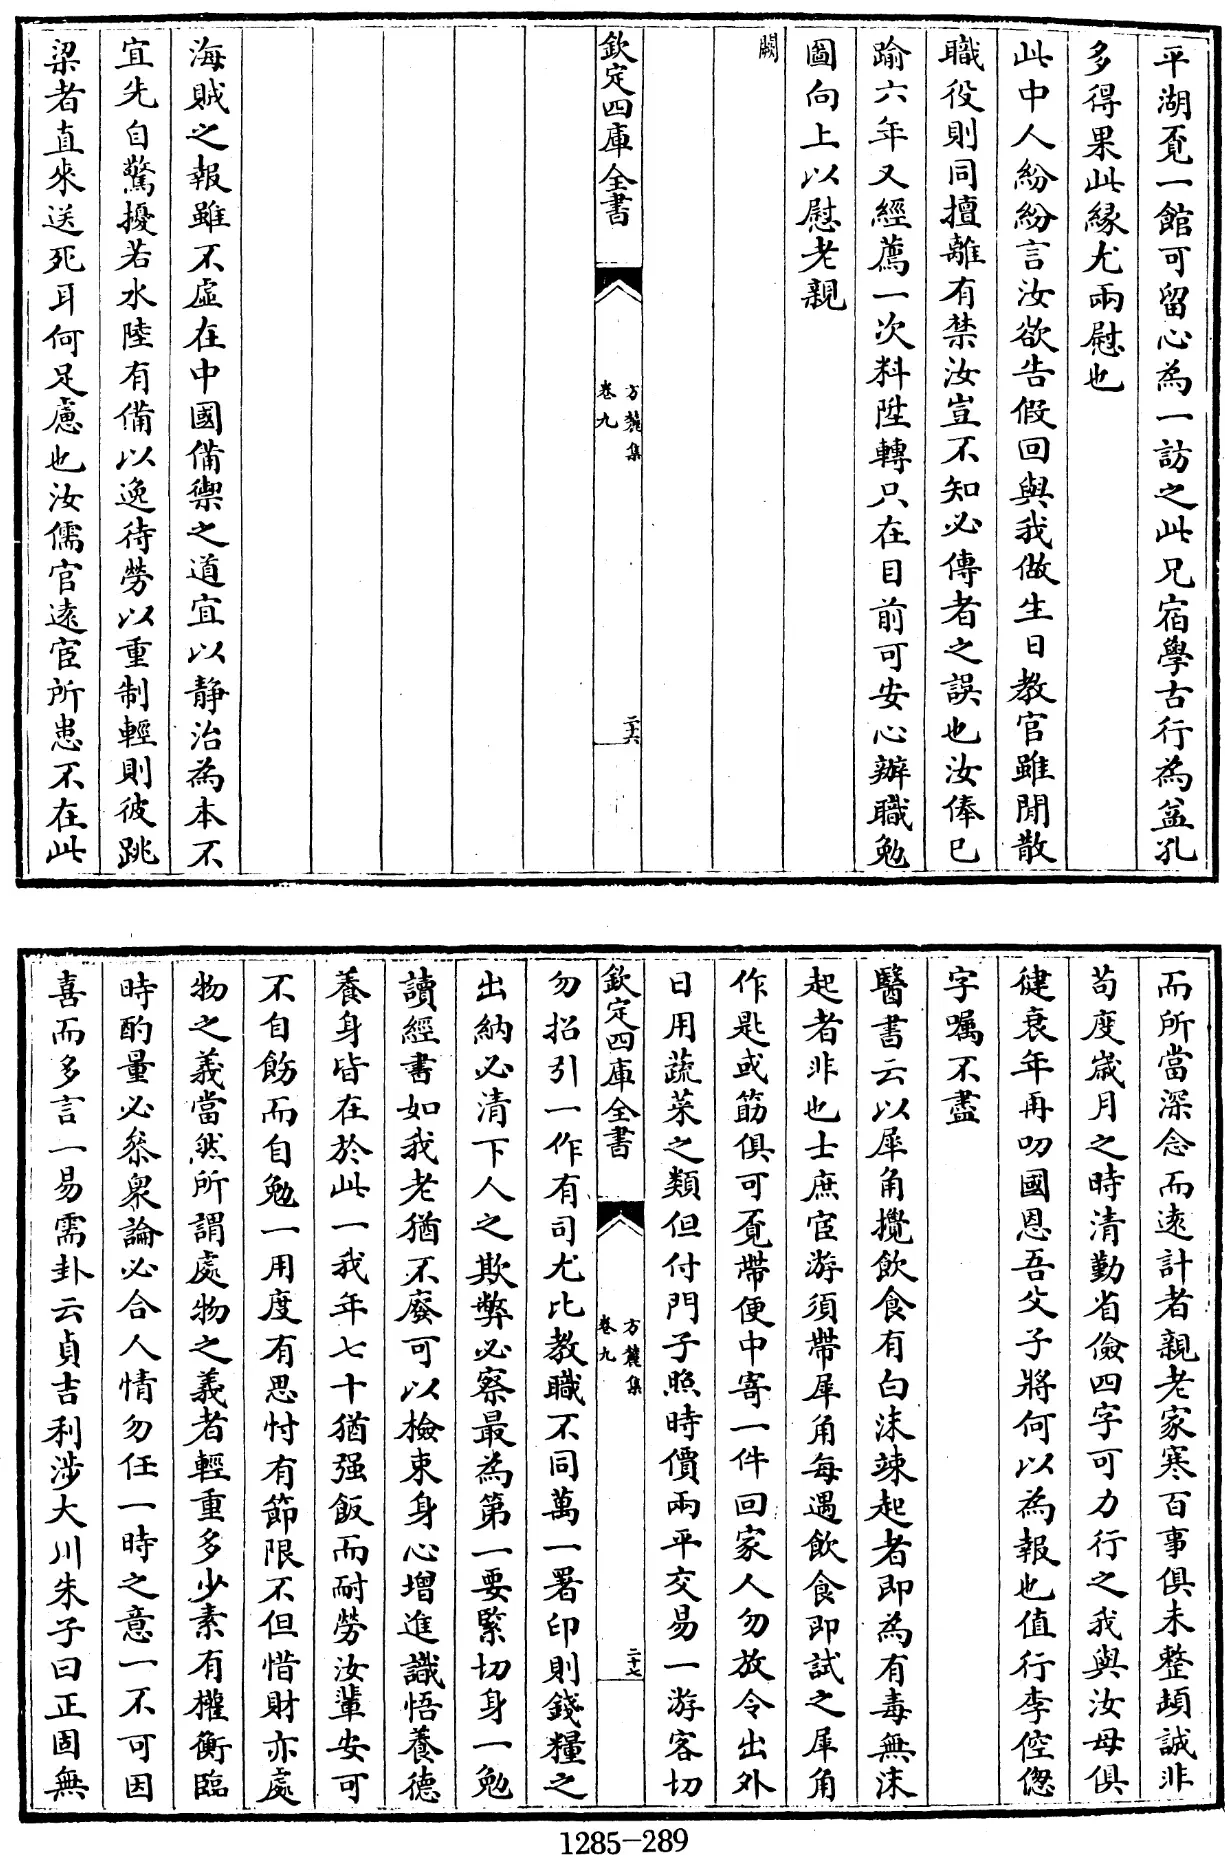 平湖覔一館可留心為一訪之此兄宿學古行為盆孔
多得果此縁尤兩慰也
此中人紛紛言汝欲告假回與我做生日教官雖閒散
職役則同擅離有禁汝豈不知必傳者之誤也汝俸已
踰六年又經薦一次料陞轉只在目前可安心辦職勉
圖向上以慰老親
闕
欽定四庫全書
方麓集
卷九
二十六
海賊之報雖不虛在中國備禦之道宜以靜治為本不
宜先自驚擾若水陸有備以逸待勞以重制輕則彼跳
梁者直來送死耳何足慮也汝儒官逺宦所患不在此
而所當深念而逺計者親老家寒百事俱未整頓誠非
苟度歲月之時清勤省儉四字可力行之我與汝母俱
健衰年再叨國恩吾父子將何以為報也值行李倥偬
字囑不盡
醫書云以犀角攪飲食有白沫竦起者即為有毒無沫
起者非也士庶宦游須帶犀角每遇飲食即試之犀角
作匙或筯俱可覔帶便中寄一件回家人勿放令出外
日用蔬菜之類但付門子照時價兩平交易一游客切
欽定四庫全書
方麓集
卷九
二十七
勿招引一作有司尤比教職不同萬一署印則錢糧之
出納必清下人之欺弊必察最為第一要緊切身一勉
讀經書如我老猶不廢可以檢束身心增進識悟養德
養身皆在於此一我年七十猶强飯而耐勞汝輩安可
不自飭而自勉一用度有思忖有節限不但惜財亦處
物之義當然所謂處物之義者輕重多少素有權衡臨
時酌量必叅衆論必合人情勿任一時之意一不可因
喜而多言一易需卦云貞吉利涉大川朱子曰正固無
1285-289